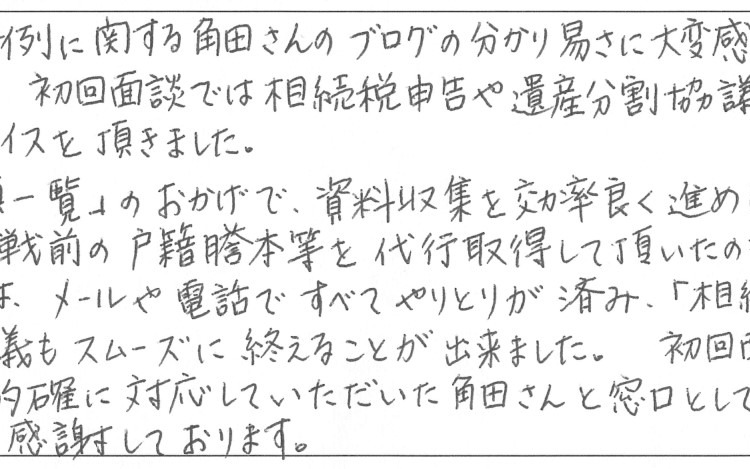 例に関する角田さんのブログの分かり易さに大変感
初回面談では相続税申告や遺産分割協議
イスを頂きました。
一覧」のおかげで、資料収集を効率良く進め
戦前の戸籍謄本等を代行取得して頂いたの
、メールや電話ですべてやりとりが済み、「相続
義もスムーズに終えることが出来ました。 初回面
的確に対応していただいた角田さんと窓口として
感謝しております。